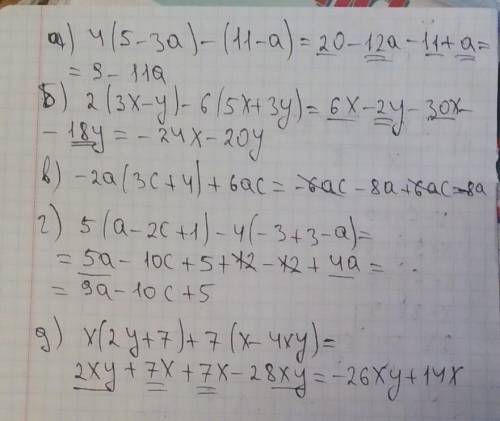 а) 4(5-3a)-(11-a)=20-12a-11+a=
=9-11a
б) 2(3x-y)-6(5x+3y)=6x-2y-30x-
-18y=-24x-20y
в) -2a(3c+4)+6ac=-6ac-8a+6ac=-8a
г) 5(a-2c+1)-4(-3+3-a)=
=5a-10c+5+12-12+4a=
=9a-10c+5
д) x(2y+7)+7(x-4xy)=
2xy+7x+7x-28xy=-26xy+14x